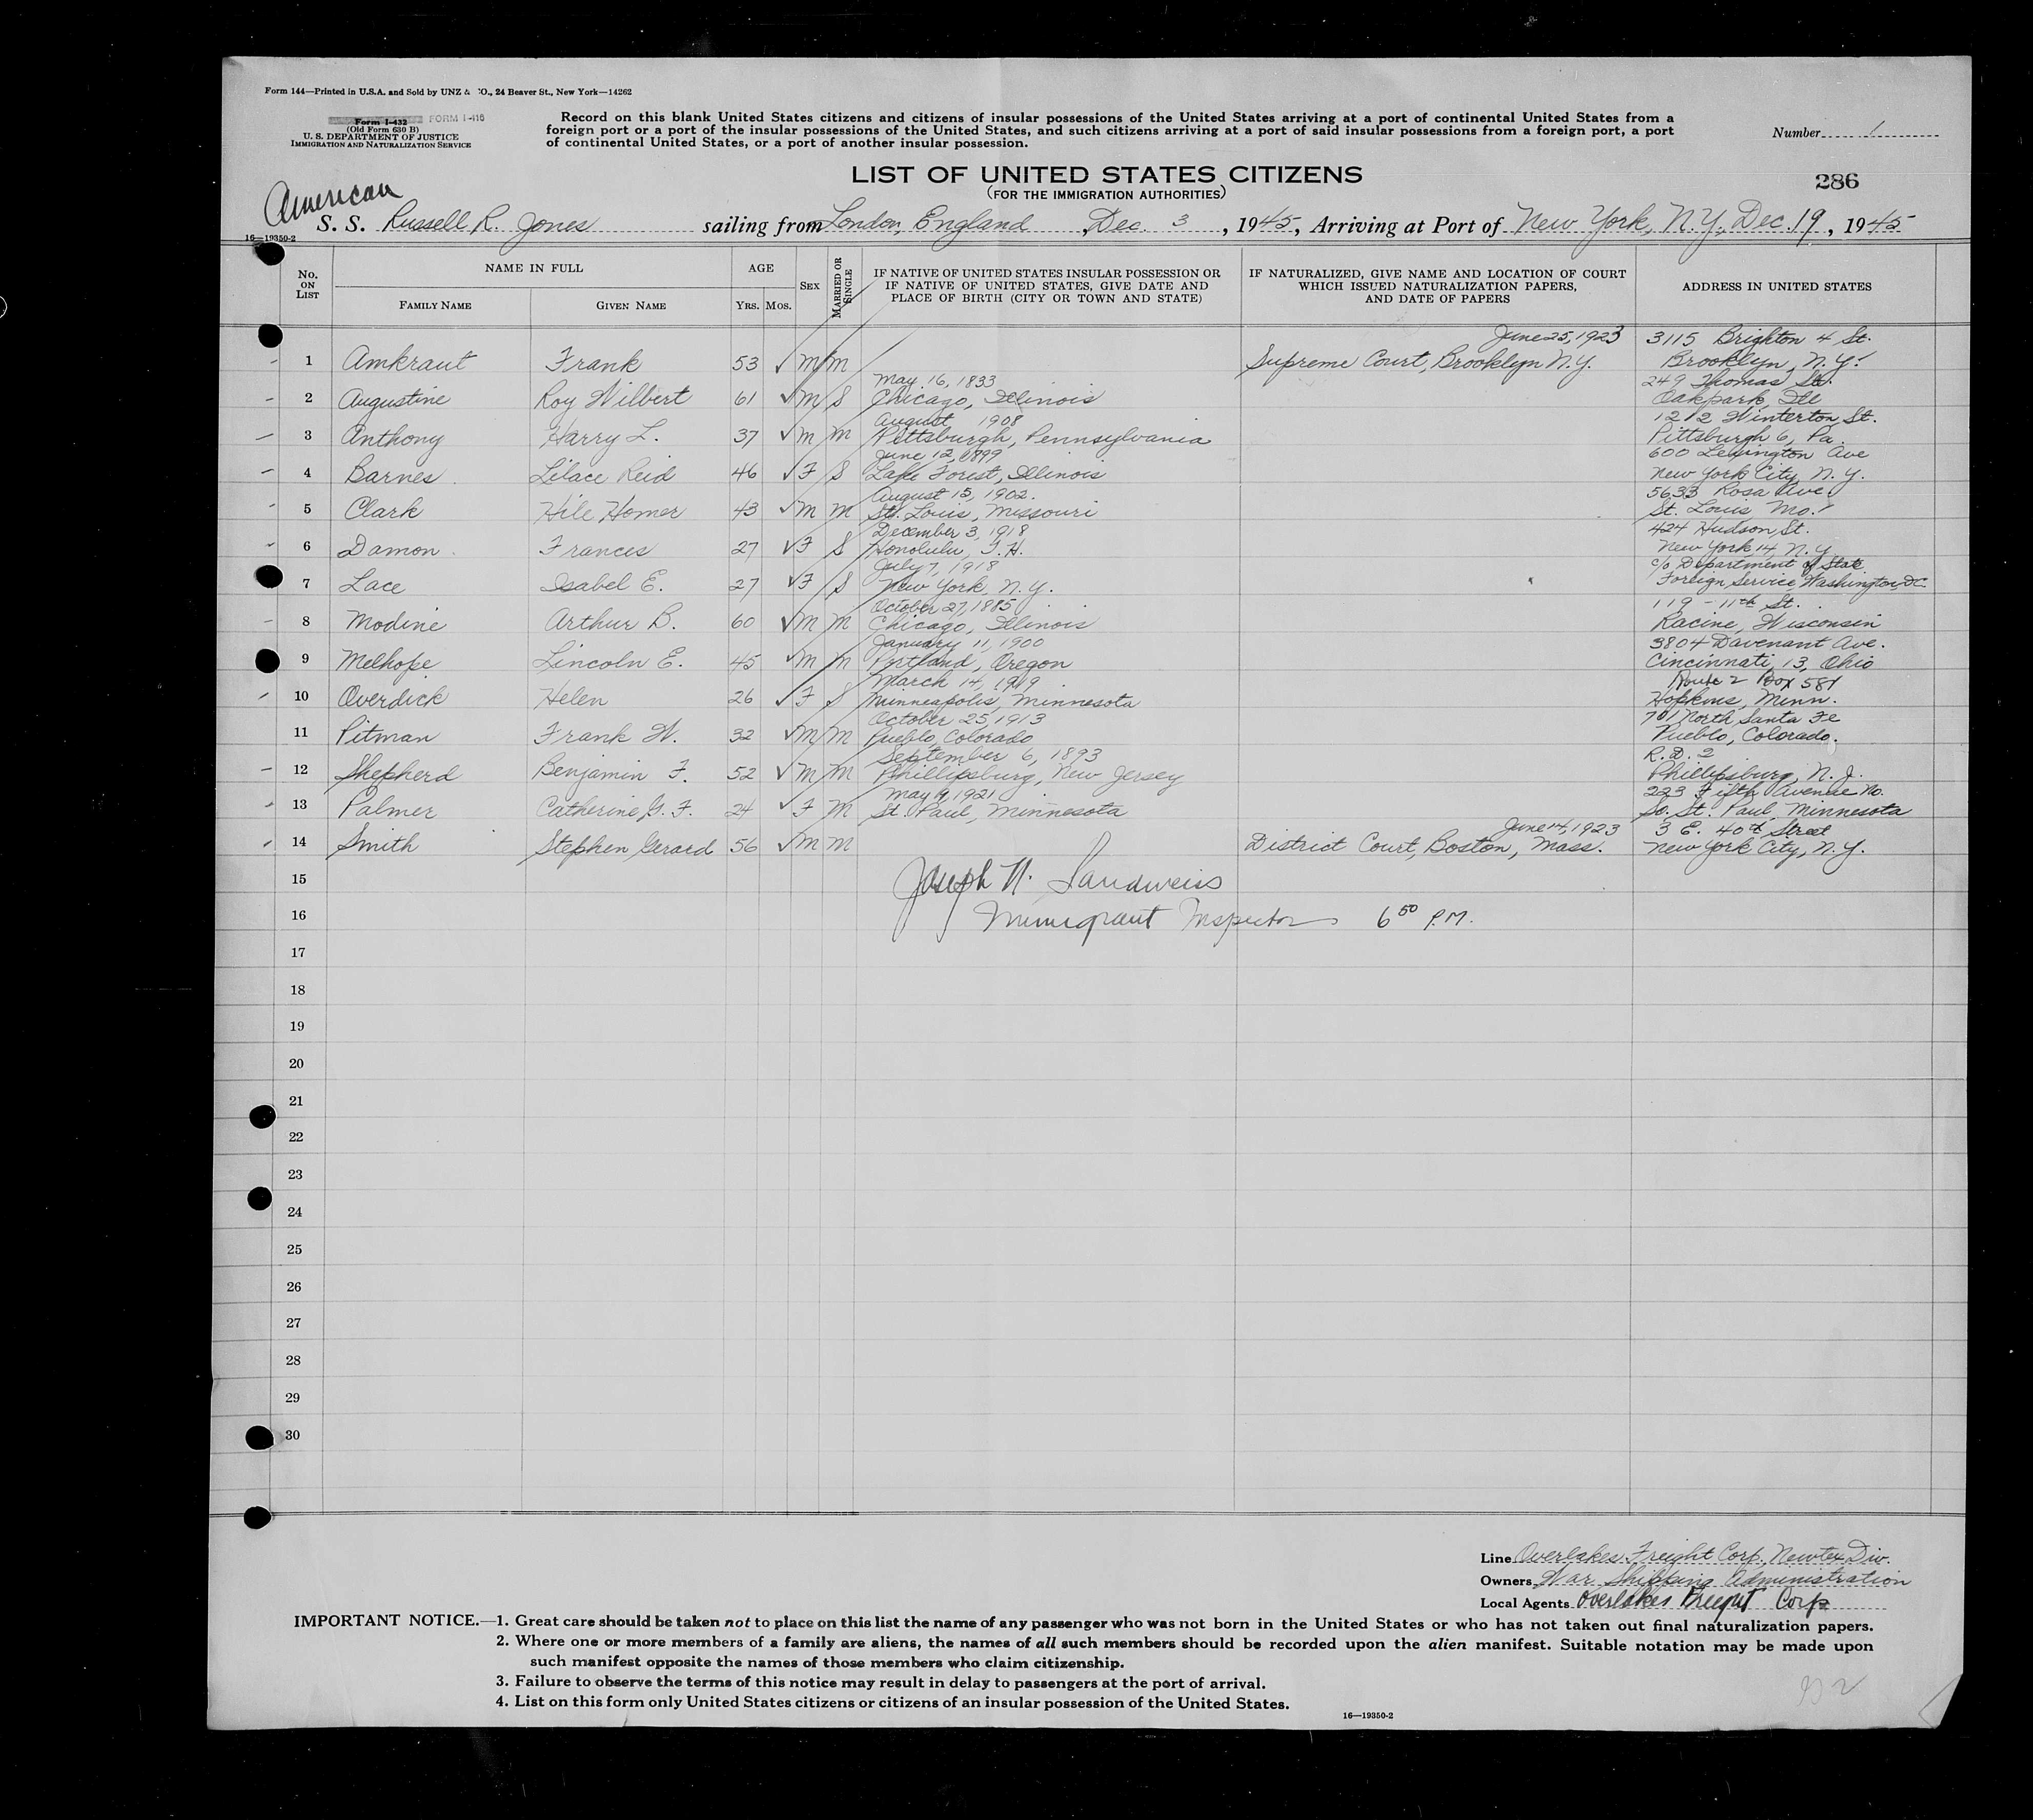 Form 144—Printed in U.S.A. and Sold by UNZ & CO., 24 Beaver St., New York—14262
Form I-432 FORM I-416
(Old Form 630 B)
U. S. DEPARTMENT OF JUSTICE
IMMIGRATION AND NATURALIZATION SERVICE
Record on this blank United States citizens and citizens of insular possessions of the United States arriving at a port of continental United States from a
foreign port or a port of the insular possessions of the United States, and such citizens arriving at a port of said insular possessions from a foreign port, a port
of continental United States, or a port of another insular possession.
Number 1
LIST OF UNITED STATES CITIZENS
(FOR THE IMMIGRATION AUTHORITIES)
286
American
S. S. Russell R. Jones sailing from London, England, Dec. 3, 1945, Arriving at Port of New York, N.Y., Dec. 19, 1945
16—19350-2
No. ON LIST
NAME IN FULL
FAMILY NAME GIVEN NAME
AGE
YRS. MOS.
SEX
MARRIED OR SINGLE
IF NATIVE OF UNITED STATES INSULAR POSSESSION OR
IF NATIVE OF UNITED STATES, GIVE DATE AND
PLACE OF BIRTH (CITY OR TOWN AND STATE)
IF NATURALIZED, GIVE NAME AND LOCATION OF COURT
WHICH ISSUED NATURALIZATION PAPERS,
AND DATE OF PAPERS
ADDRESS IN UNITED STATES
June 25, 1923 3115 Brighton 4 St.
1 Amkraut Frank 53 ✓ M M Supreme Court, Brooklyn N.Y. Brooklyn, N.Y.
May 16, 1833 249 Thomas St.
2 Augustine Roy Wilbert 61 ✓ M S Chicago, Illinois Oakpark, Ill
August 1908 1212 Winterton St.
3 Anthony Harry L. 37 ✓ M M Pittsburgh, Pennsylvania Pittsburgh 6, Pa.
June 12, 1899 600 Lexington Ave
4 Barnes Lilace Reid 46 ✓ F S Lake Forest, Illinois New York City, N.Y.
August 15, 1902. 5633 Rosa Ave
5 Clark Hile Homer 43 ✓ M M St. Louis, Missouri St. Louis Mo.
December 3, 1918 424 Hudson St.
6 Damon Frances 27 ✓ F S Honolulu, T.H. New York 14 N.Y.
July 7, 1918 c/o Department of State
7 Lace Isabel E. 27 ✓ F S New York, N.Y. Foreign Service, Washington, D.C.
October 27, 1885 119 - 11th St.
8 Modine Arthur B. 60 ✓ M M Chicago, Illinois Racine, Wisconsin
January 11, 1900 3804 Davenant Ave.
9 Melhope Lincoln E. 45 ✓ M M Portland, Oregon Cincinnati, 13, Ohio
March 14, 1919 Route 2 Box 581
10 Overdick Helen 26 ✓ F S Minneapolis, Minnesota Hopkins, Minn.
October 25, 1913 701 North Santa Fe
11 Pitman Frank W. 32 ✓ M M Pueblo, Colorado Pueblo, Colorado.
September 6, 1893 R.D. 2
12 Shepherd Benjamin F. 52 ✓ M M Phillipsburg, New Jersey Phillipsburg, N.J.
May 9, 1921 223 Fifth Avenue No.
13 Palmer Catherine G. F. 24 ✓ F M St. Paul, Minnesota So. St. Paul, Minnesota
June 14, 1923 3 E. 40th Street
14 Smith Stephen Gerard 56 ✓ M M District Court, Boston, Mass. New York City, N.Y.
15 Joseph N. Landweiss
16 Immigrant Inspector 6 50 P.M.
17
18
19
20
21
22
23
24
25
26
27
28
29
30
Line Overlakes Freight Corp. Newtex Div.
Owners War Shipping Administration
Local Agents Overlakes Freight Corp
IMPORTANT NOTICE.—1. Great care should be taken not to place on this list the name of any passenger who was not born in the United States or who has not taken out final naturalization papers.
2. Where one or more members of a family are aliens, the names of all such members should be recorded upon the alien manifest. Suitable notation may be made upon
such manifest opposite the names of those members who claim citizenship.
3. Failure to observe the terms of this notice may result in delay to passengers at the port of arrival.
4. List on this form only United States citizens or citizens of an insular possession of the United States.
16—19350-2